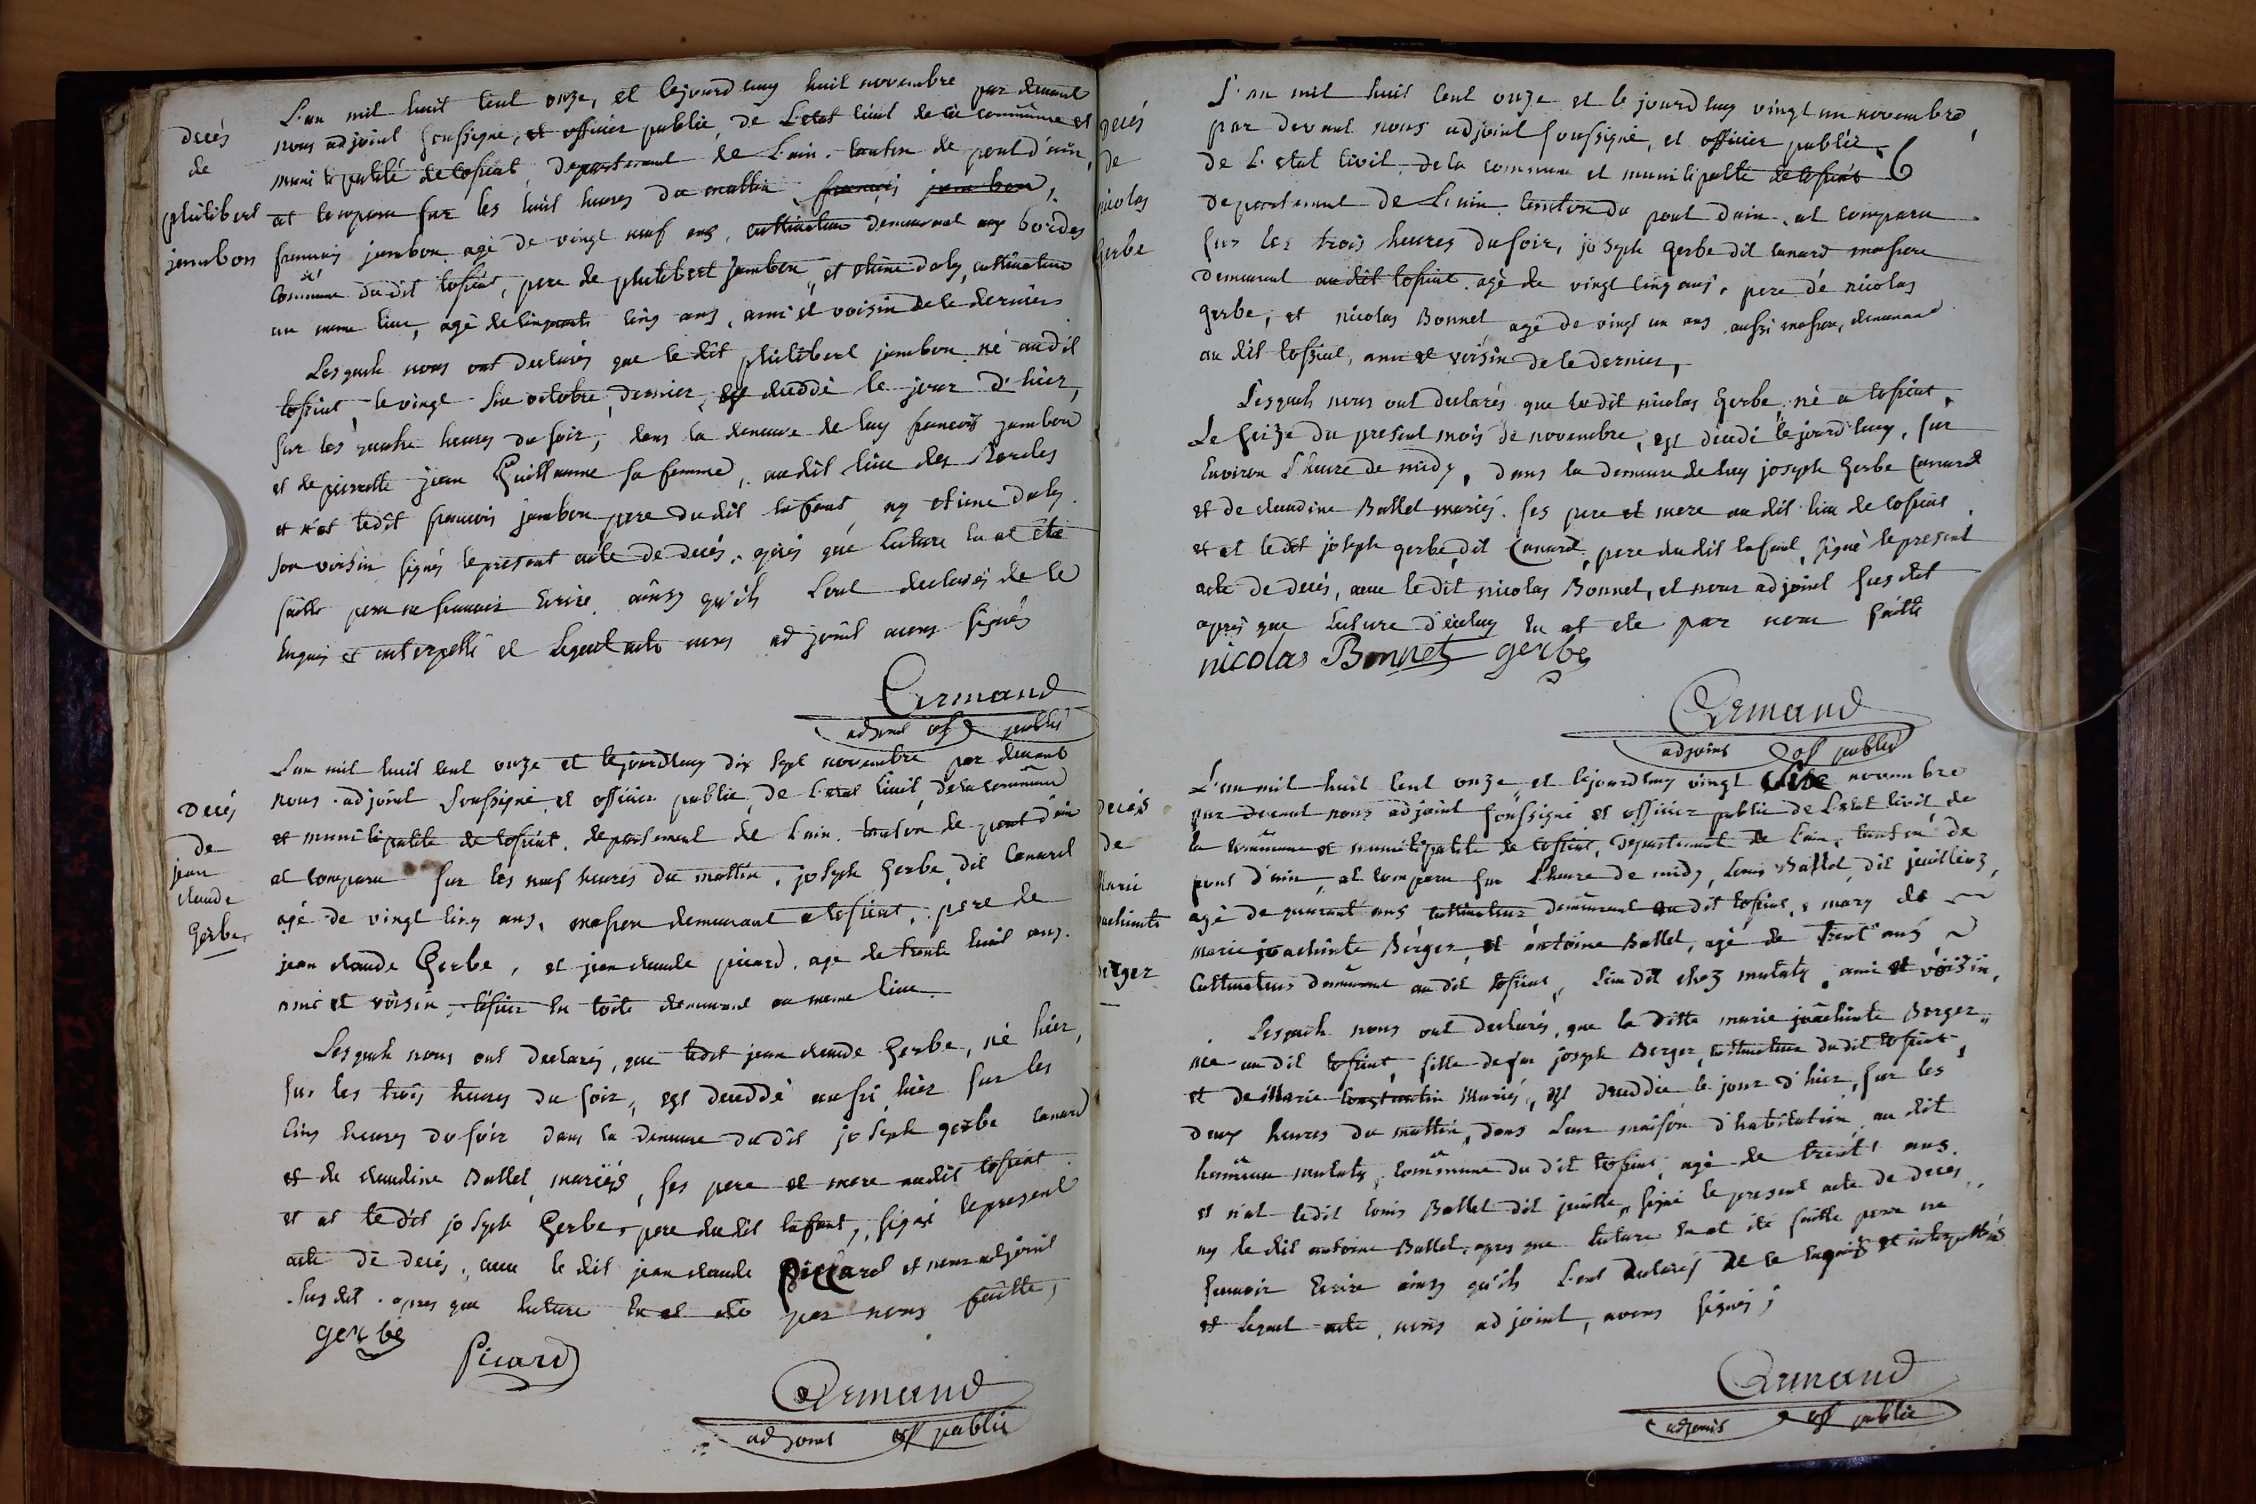 decés
de
philibert
jambon
L'an mil huit cent onze, et le jourd'huy huit novembre par devant
nous adjoint soussigné, et officier public, de L'etat civil de la commune et
municipalité de tossiat departement de L'ain. canton de pont d'ain,
at comparu sur les huit heures du mattin françois jambon,
françois jambon agé de vingt neuf ans, cultivateur demeurant aux bordes
commune du dit tossiat, pere de philibert jambon, et etiene daly, cultivateur
au meme lieu, agé de cinquante cinq ans, ami et voisin de ce dernier
Lesquels nous ont declarés que le dit philibert jambon né audit
tossiat, le vingt six octobre dernier, est deceddé le jour d'hier,
sur les quatre heures du soir, dans la demeure de luy françois jambon
et de pierrette jeane Guillaume sa femme, audit lieu des Bordes
et n'at ledit françois jambon pere du dit enfant ny etiene daly
son voisin signés le present acte de decés, apres que lecture en at eté
faitte pour ne scavoir ecrire ainsy qu'ils L'ont declarés de ce
enquis et interpellé et lequel acte nous adjoint avons signés
Armand
adjoint off public
Decés
de
jean
claude
Gerbe
L'an mil huit cent onze et le jourd'huy dix sept novembre par devant
nous adjoint soussigné et officier public de L'etat civil, de la commune
et municipalité de tossiat, departement de L'ain canton de pont d'ain
at comparu sur les neuf heures du mattin, joseph Gerbe, dit Canard
agé de vingt cinq ans, masson demeurant a tossiat, pere de
jean claude Gerbe, et jean claude picard, agé de trente huit ans.
ami et voisin, demeurant au meme lieu
Lesquels nous ont declarés, que ledit jean claude Gerbe, né hier,
sur les trois heures du soir, est deceddé aussi hier sur les
cinq heures du soir dans la demeure du dit joseph gerbe canard
et de claudine Ballet mariés, ses pere et mere audit tossiat
et at le dit joseph Gerbe pere du dit enfant, signé le present
acte de decés, avec le dit jean claude Piccard et nous adjoint
susdit apres que lecture en at eté par nous faitte,
gerbe
Picard
Armand
adjoint off public
Decés
de
nicolas
Gerbe
6
L'an mil huit cent onze et le jourd'huy vingt un novembre,
par devant nous adjoint soussigné, et officier public
de L'etat civil de la commune et municipalité de tossiat
departement de L'ain canton du pont dain, at comparu
sur les trois heures du soir, joseph Gerbe dit canard masson
demeurant audit tossiat agé de vingt cinq ans, pere dé nicolas
gerbe, et nicolas Bonnet agé de vingt un ans aussi masson, demeurant
au dit tossiat, ami et voisin de ce dernier,
Lesquels nous ont declarés que ledit nicolas Gerbe né a tossiat,
Le seize du present mois de novembre, est decedé le jourd'huy, sur
Environ L'heure de midy, dans la demeure de luy joseph Gerbe Canard
et de claudine Ballet mariés. ses pere et mere au dit lieu de tossiat
et at le dit joseph gerbe, dit Canard, pere du dit enfant, signé le present
acte de decés, avec le dit nicolas Bonnet, et nous adjoint sus dit
apres que Lecture d'iceluy en at eté par nous faitte
nicolas Bonnet gerbe
Armand
adjoint off public
Decés
de
Marie
joachinte
Berger
L'an mil huit cent onze, et le jourd'huy vingt novembre
par devant nous adjoint soussigné et officier public de L'etat civil de
la commune et municipalité de tossiat, departement de L'ain, canton de
pont d'ain, at comparu sur L'heure de midy, Louis Ballet, dit
agé de quarant ans cultivateur demeurant audit tossiat, mary de
marie joachinte Berger, et antoine Ballet, agé de trent ans
Cultivateur demeurant au dit tossiat, lieu dit chez mulaty, ami et voisin,
Lesquels nous ont declarés, que la ditte marie joachinte Berger,
née au dit tossiat, fille de feu joseph Berger, cultivateur du dit tossiat,
et de Marie Constantin Mariés, est deceddée le jour d'hier, sur les
deux heures du mattin, dans Leur maison d'habitation au dit
hameau mulaty, commune du dit tossiat, agé de trent ans
et n'at le dit Louis Ballet dit signé le present acte de deces,
ny le dit antoine Ballet, apres que lecture en at été faitte pour ne
scavoir Ecrire ainsy qu'ils L'ont declarés de ce enquis et interpellés
et lequel acte, nous adjoint, avons signés;
Armand
adjoint off public